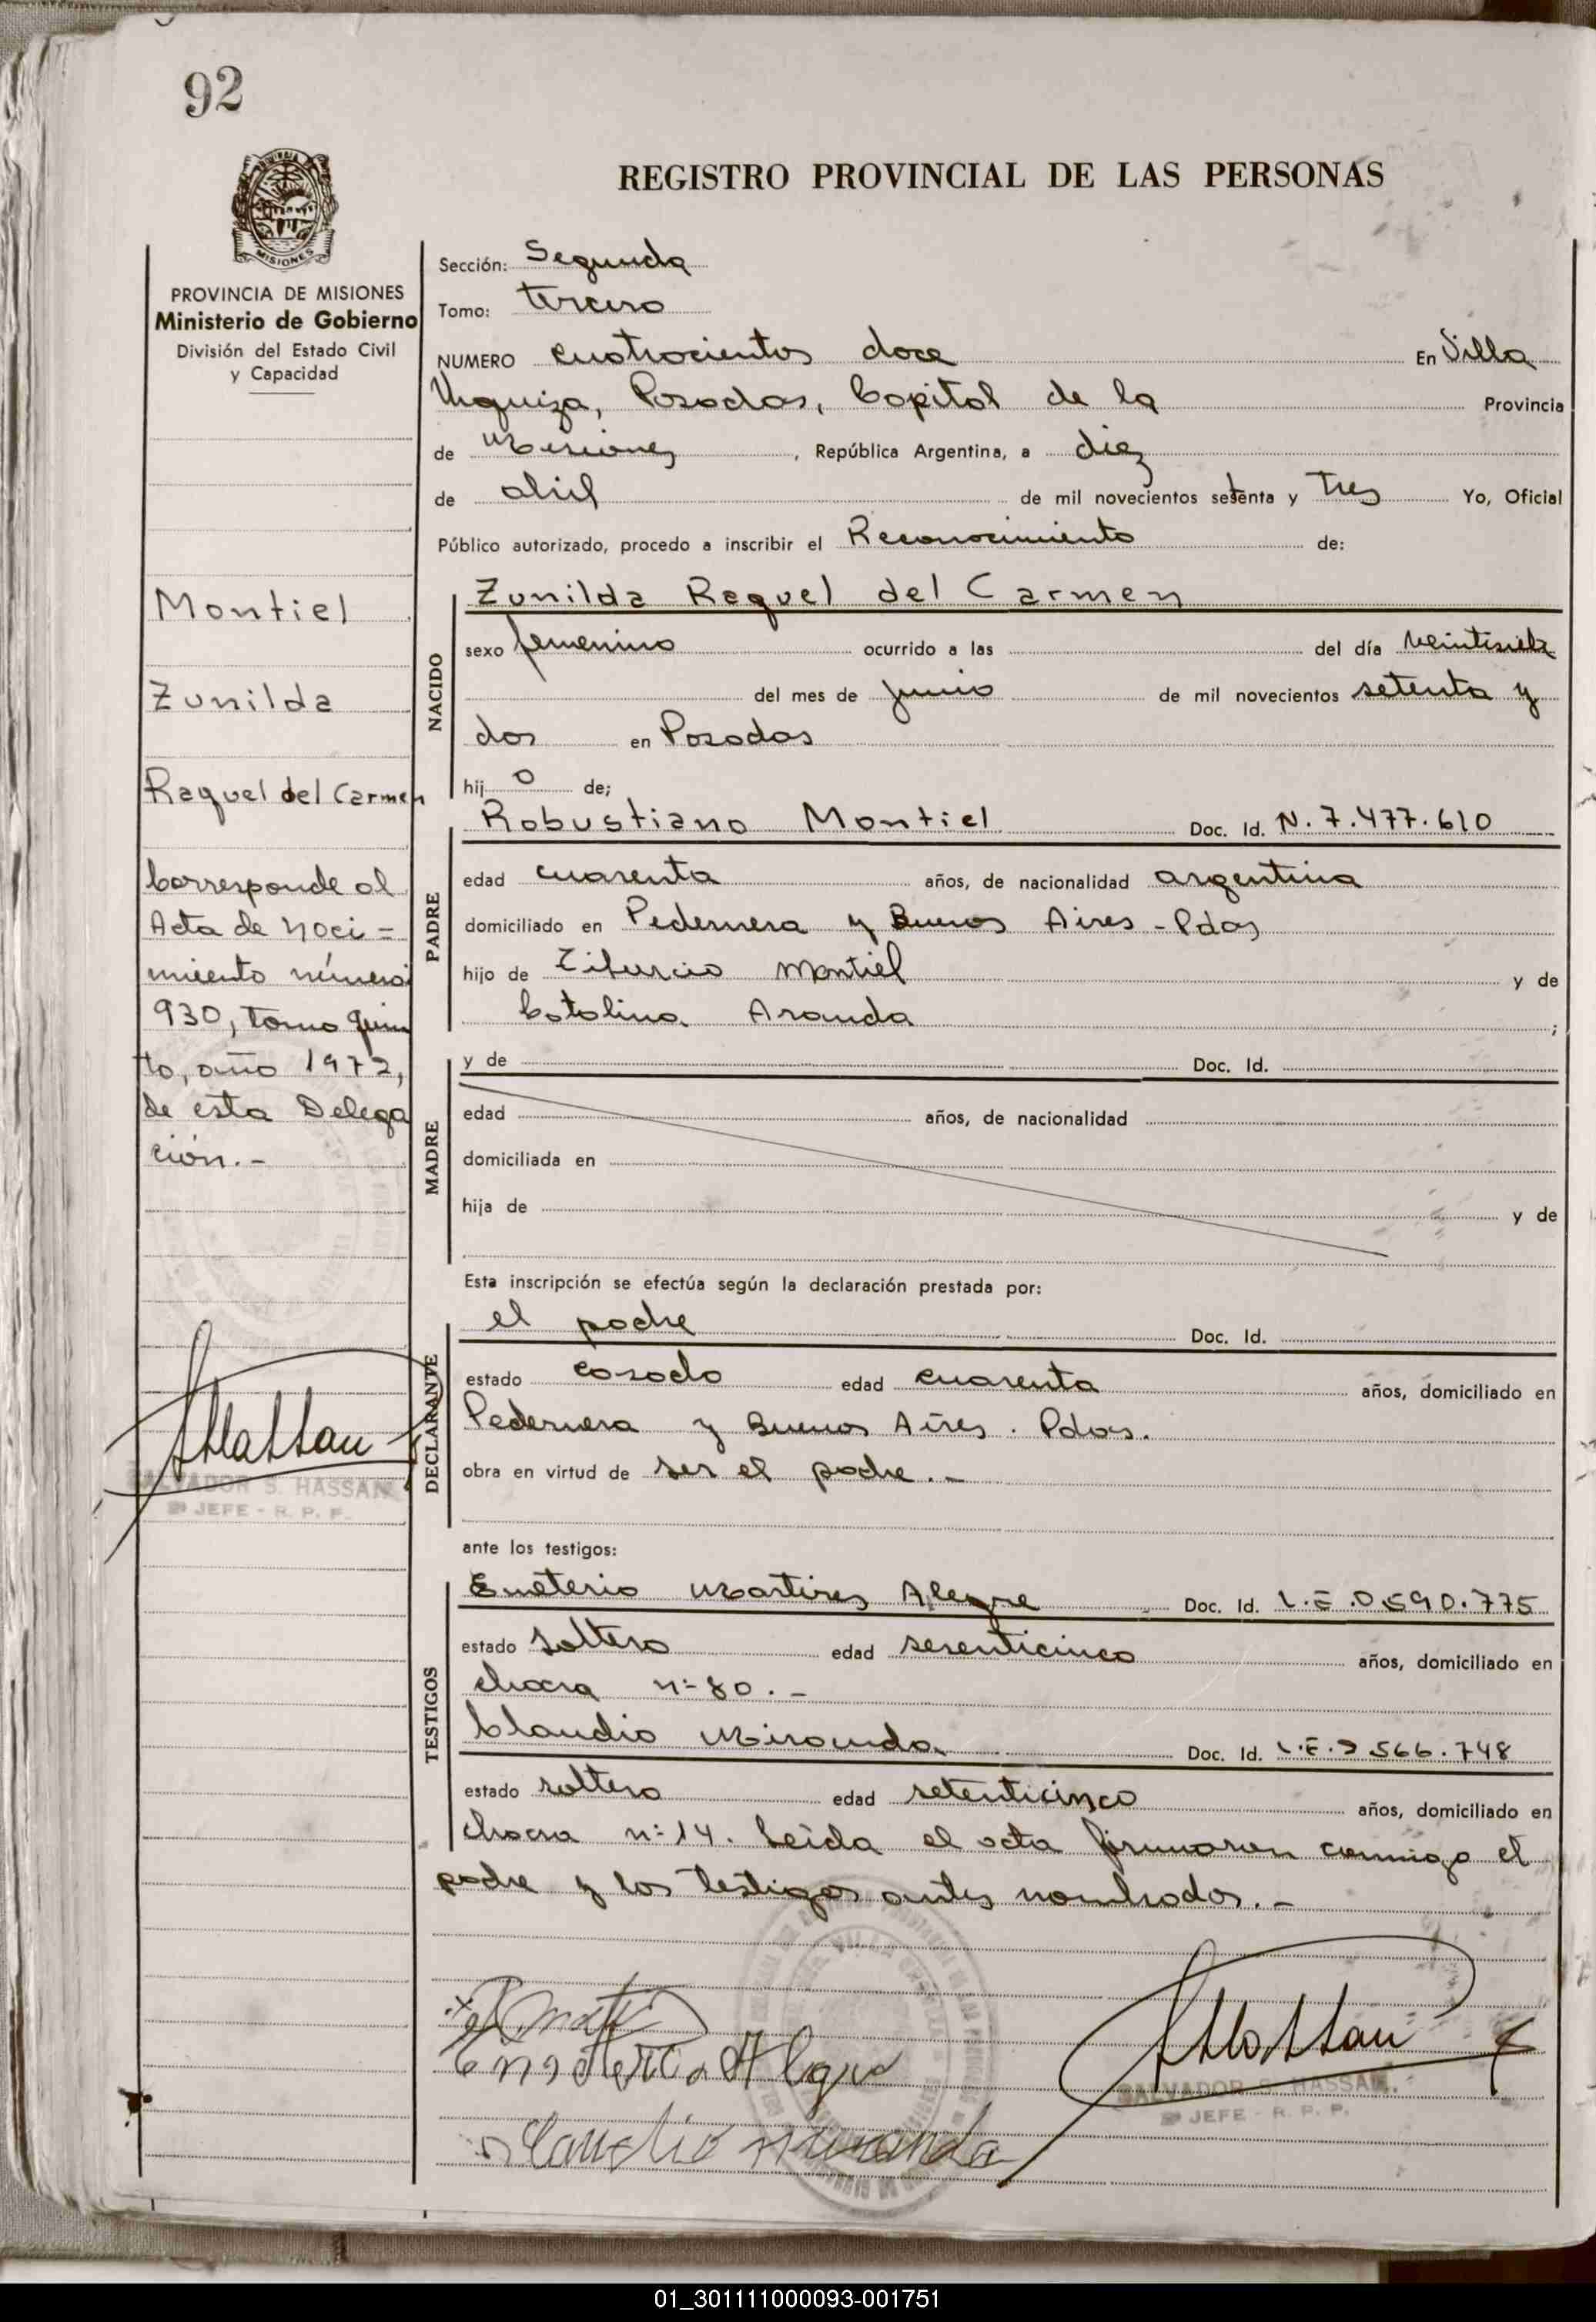 92
REGISTRO PROVINCIAL DE LAS PERSONAS
MISIONES
PROVINCIA DE MISIONES
Ministerio de Gobierno
División del Estado Civil
y Capacidad
Montiel
Zunilda
Raquel del Carmen
Corresponde al
Acta de naci=
miento número
930, tomo quin
to, año 1972,
de esta Delega
ción.-
SALVADOR S. HASSAN
JEFE - R. P. P.
Sección: Segunda
Tomo: tercero
NUMERO cuatrocientos doce En Villa
Urquiza, Posadas, Capital de la Provincia
de Misiones, República Argentina, a diez
de abril de mil novecientos setenta y tres Yo, Oficial
Público autorizado, procedo a inscribir el Reconocimiento de:
NACIDO
Zunilda Raquel del Carmen
sexo femenino ocurrido a las del día veintisiete
del mes de junio de mil novecientos setenta y
dos en Posadas
hij o de;
PADRE
Robustiano Montiel Doc. Id. N. 7.477.610
edad cuarenta años, de nacionalidad argentina
domiciliado en Pedernera y Buenos Aires - Pdas
hijo de Tiburcio Montiel y de
Catalina Aranda ;
MADRE
y de Doc. Id.
edad años, de nacionalidad
domiciliada en
hija de y de
Esta inscripción se efectúa según la declaración prestada por:
DECLARANTE
el padre Doc. Id.
estado casado edad cuarenta años, domiciliado en
Pedernera y Buenos Aires. Pdas.
obra en virtud de ser el padre.-
ante los testigos:
TESTIGOS
Emeterio Martires Alegre Doc. Id. L.E. 0.590.775
estado soltero edad sesenticinco años, domiciliado en
chacra nº 80.-
Claudio Miranda Doc. Id. L.E. 566.748
estado soltero edad setenticinco años, domiciliado en
chacra nº 14. Leída el acta firmaron conmigo el
padre y los testigos antes nombrados.-
Emeterio Alegre
Claudio Miranda
SALVADOR S. HASSAN
JEFE - R. P. P.
01_301111000093-001751